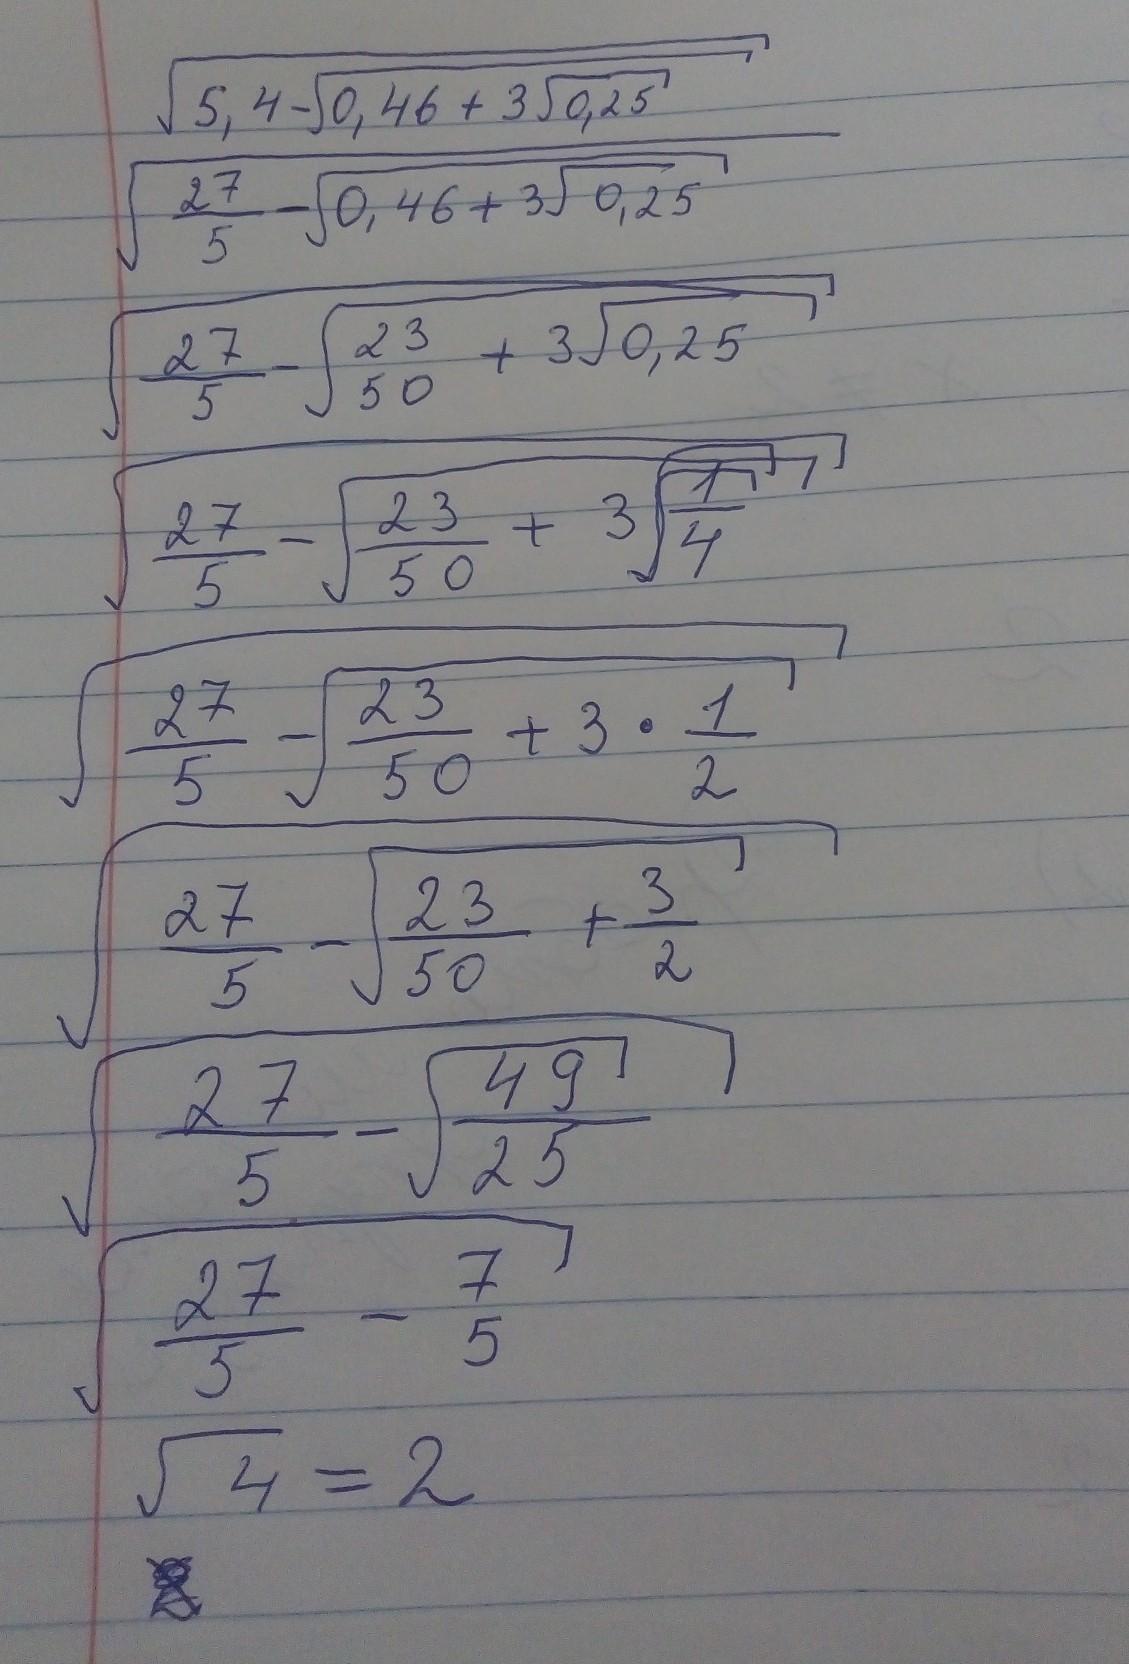 √(5,4-√(0,46+3√(0,25)))
√(27/5-√(0,46+3√(0,25)))
√(27/5-√(23/50+3√(0,25)))
√(27/5-√(23/50+3√(1/4)))
√(27/5-√(23/50+3·1/2))
√(27/5-√(23/50+3/2))
√(27/5-√(49/25))
√(27/5-7/5)
√4=2